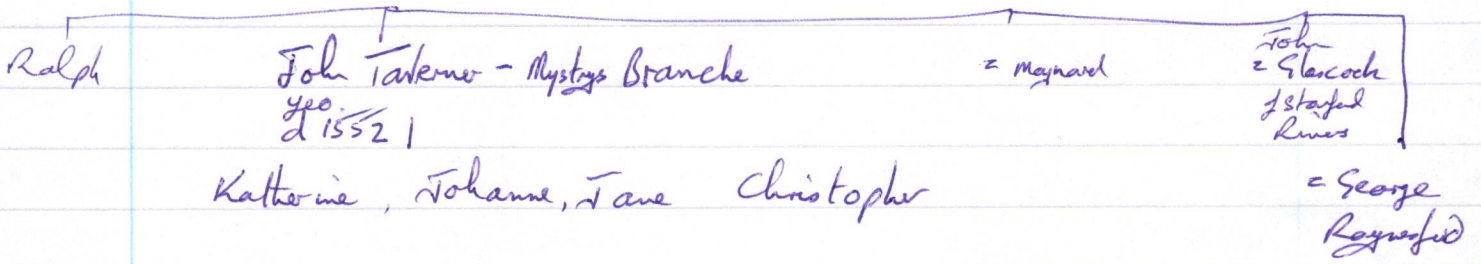 Ralph
John Taverner - Mystrys Branche
yeo.
d 1552
= Maynard
John
= Glascock
of Stanford
Rivers
Katherine, Johanne, Jane Christopher
= George